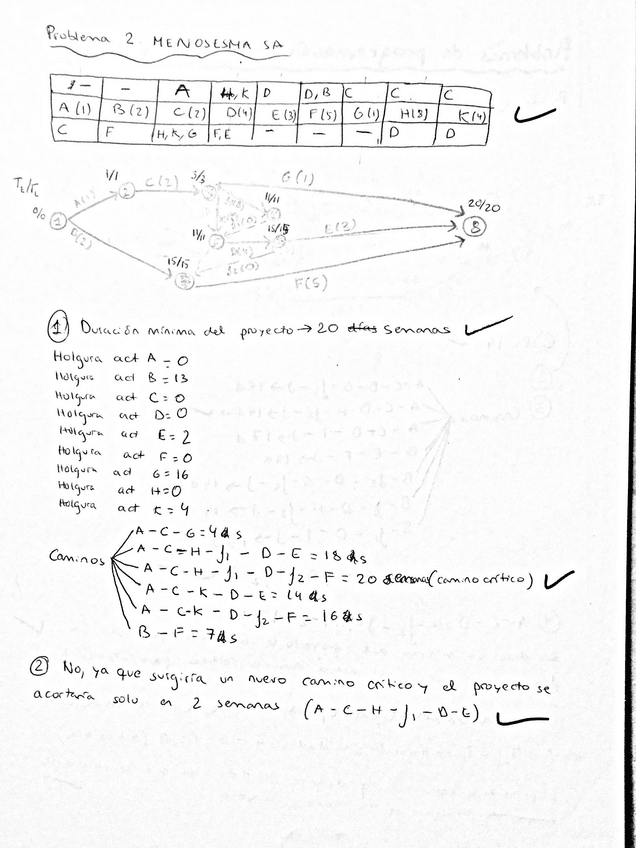 Problema 2. MENOSESMA SA
- - A H, K D D, B C C C
A(1) B(2) C(2) D(4) E(3) F(5) G(1) H(8) K(4)
C F H, K, G F, E - - - D D
TE/TL
0/0 1 A(1) 1/1 2 C(2) 3/3 G(1) 11/11 20/20
B(2) 11/11 D(4) 15/15 E(3) 8
15/15 f2(0) F(5)
① Duración mínima del proyecto → 20 semanas
Holgura act A = 0
Holgura act B = 13
Holgura act C = 0
Holgura act D = 0
Holgura act E = 2
Holgura act F = 0
Holgura act G = 16
Holgura act H = 0
Holgura act K = 4
Caminos
A - C - G = 4 s
A - C - H - f1 - D - E = 18 s
A - C - H - f1 - D - f2 - F = 20 semanas (camino crítico)
A - C - K - D - E = 14 s
A - C - K - D - f2 - F = 16 s
B - F = 7 s
② No, ya que surgiría un nuevo camino crítico y el proyecto se
acortaría solo en 2 semanas (A - C - H - f1 - D - E)